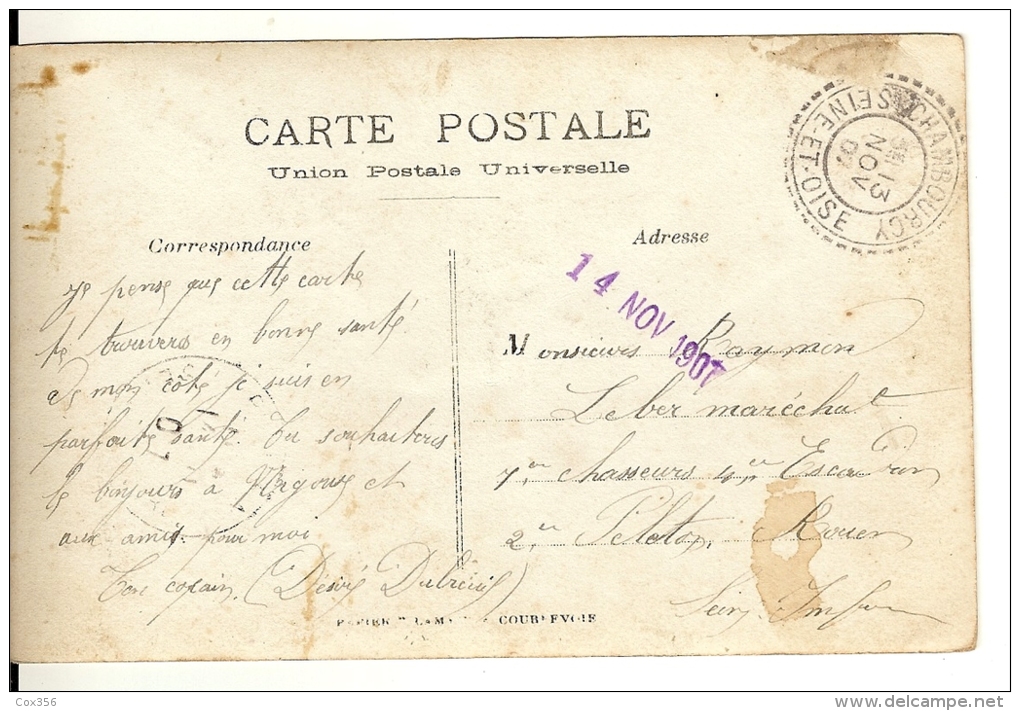 CARTE POSTALE
Union Postale Universelle
CHAMBOURCY
SEINE-ET-OISE
13
NOV
07
Correspondance
Adresse
14 NOV 1907
je pense que cette carte
te trouvers en bonne santé
de mon coté je suis en
parfaite santé. Tu souhaiteras
le bonjours à et
aux amis pour moi
Ton copain (Desiré Dubreuil)
07
Monsieurs Raymon
Leber maréchal
7em chasseurs 4em Escadron
2em Peleton Rouen
Seine Infre
COURBEVOIE
Cox356
www.delcampe.net